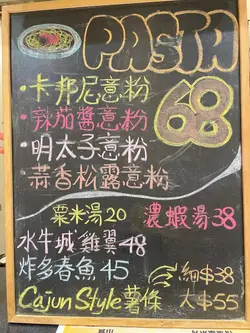 PASTA
·卡邦尼意粉
·辣茄醬意粉
·明太子意粉
·蒜香松露意粉
68
粟米湯20 濃蝦湯38
水牛城雞翼48
炸多春魚45
Cajun Style薯條
細$38
大$55